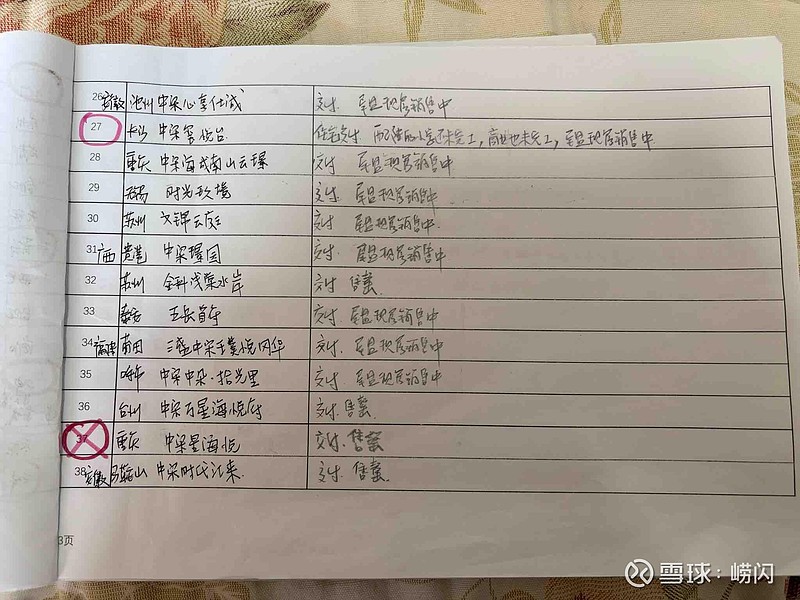 26 安徽 池州 中梁心享仕城 交付. 尾盘现房销售中
27 长沙 中梁 悦台 住宅交付. 配 的小学还未完工, 商业也未完工, 尾盘现房销售中
28 重庆 中梁海成南山云璟 交付 尾盘现房销售中
29 无锡 时光玖境 交付. 尾盘现房销售中
30 苏州 文锦云庭 交付 尾盘现房销售中.
31 广西 贵港 中梁璟园 交付. 尾盘现房销售中
32 苏州 浅棠水岸 交付 售罄.
33 泰安 五岳首府 交付. 尾盘现房销售中
34 福建 莆田 三盛中梁璞悦风华 交付. 尾盘现房销售中
35 中梁·拾光里 交付 尾盘现房销售中
36 台州 中梁百星海悦府 交付. 售罄.
37 重庆 中梁星海悦 交付. 售罄
38 安徽 马鞍山 中梁时代江来. 交付. 售罄.
3页
雪球:崂闪